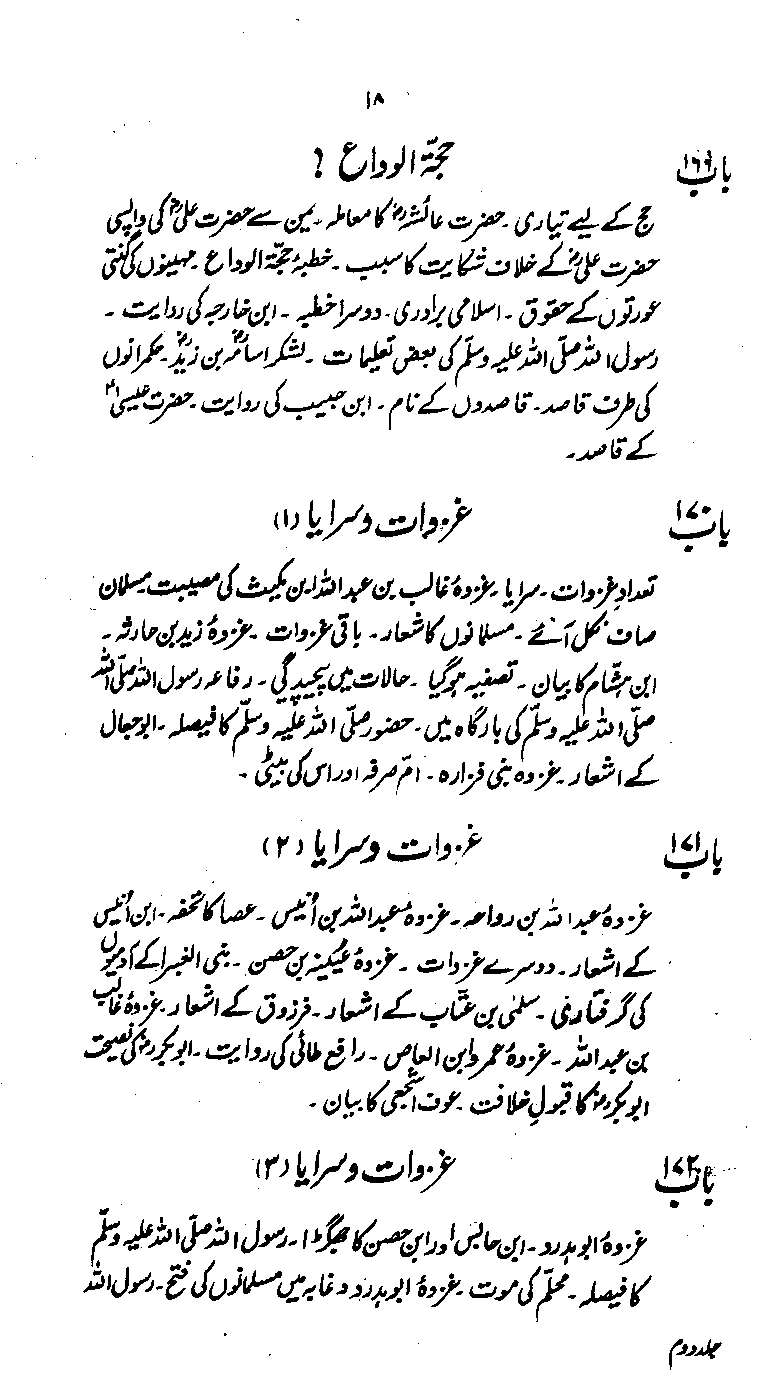 ۱۸
باب ۱۶۹
حجّۃ الوداع ؟
حج کے لیے تیاری ۔ حضرت عائشہؓ کا معاملہ ۔ یمن سے حضرت علیؓ کی واپسی
حضرت علیؓ کے خلاف شکایت کا سبب ۔ خطبۂ حجّۃ الوداع ۔ مہینوں کی گنتی
عورتوں کے حقوق ۔ اسلامی برادری ۔ دوسرا خطبہ ۔ ابن خارجہ کی روایت ۔
رسول اللہ صلّی اللہ علیہ وسلّم کی بعض تعلیمات ۔ لشکر اسامہؓ بن زیدؓ ۔ حکمرانوں
کی طرف قاصد ۔ قاصدوں کے نام ۔ ابن حبیب کی روایت ۔ حضرت عیسیٰؑ
کے قاصد ۔
باب ۱۷۰
غزوات و سرایا (۱)
تعدادِ غزوات ۔ سرایا ۔ غزوۂ غالب بن عبداللہ ابن مکیث کی مصیبت مسلمان
صاف نکل آئے ۔ مسلمانوں کا شعار ۔ باقی غزوات ۔ غزوۂ زید بن حارثہ ۔
ابن ہشام کا بیان ۔ تصفیہ ہوگیا ۔ حالات میں پیچیدگی ۔ رفاعہ رسول اللہ صلّی اللہ
صلّی اللہ علیہ وسلّم کی بارگاہ میں ۔ حضور صلّی اللہ علیہ وسلّم کا فیصلہ ۔ ابوجعال
کے اشعار ۔ غزوہ بنی فزارہ ۔ امّ صرفہ اور اس کی بیٹی ۔
باب ۱۷۱
غزوات و سرایا (۲)
غزوۂ عبداللہ بن رواحہ ۔ غزوۂ عبداللہ بن اُنیس ۔ عصا کا تحفہ ۔ ابن اُنیس
کے اشعار ۔ دوسرے غزوات ۔ غزوۂ عُیینہ بن حصن ۔ بنی العنبر کے آدمیوں
کی گرفتاری ۔ سلمٰی بن عتّاب کے اشعار ۔ فرزوق کے اشعار ۔ غزوۂ غالب
بن عبداللہ ۔ غزوۂ عمرو ابن العاص ۔ رافع طائی کی روایت ۔ ابوبکرؓ کی نصیحت
ابوبکرؓ کا قبولِ خلافت ۔ عوف اشجعی کا بیان ۔
باب ۱۷۲
غزوات و سرایا (۳)
غزوۂ ابوہدرد ۔ ابن حابس اور ابن حصن کا جھگڑا ۔ رسول اللہ صلّی اللہ علیہ وسلّم
کا فیصلہ ۔ محلّم کی موت ۔ غزوۂ ابوہدرد و غابہ میں مسلمانوں کی فتح ۔ رسول اللہ
جلد دوم